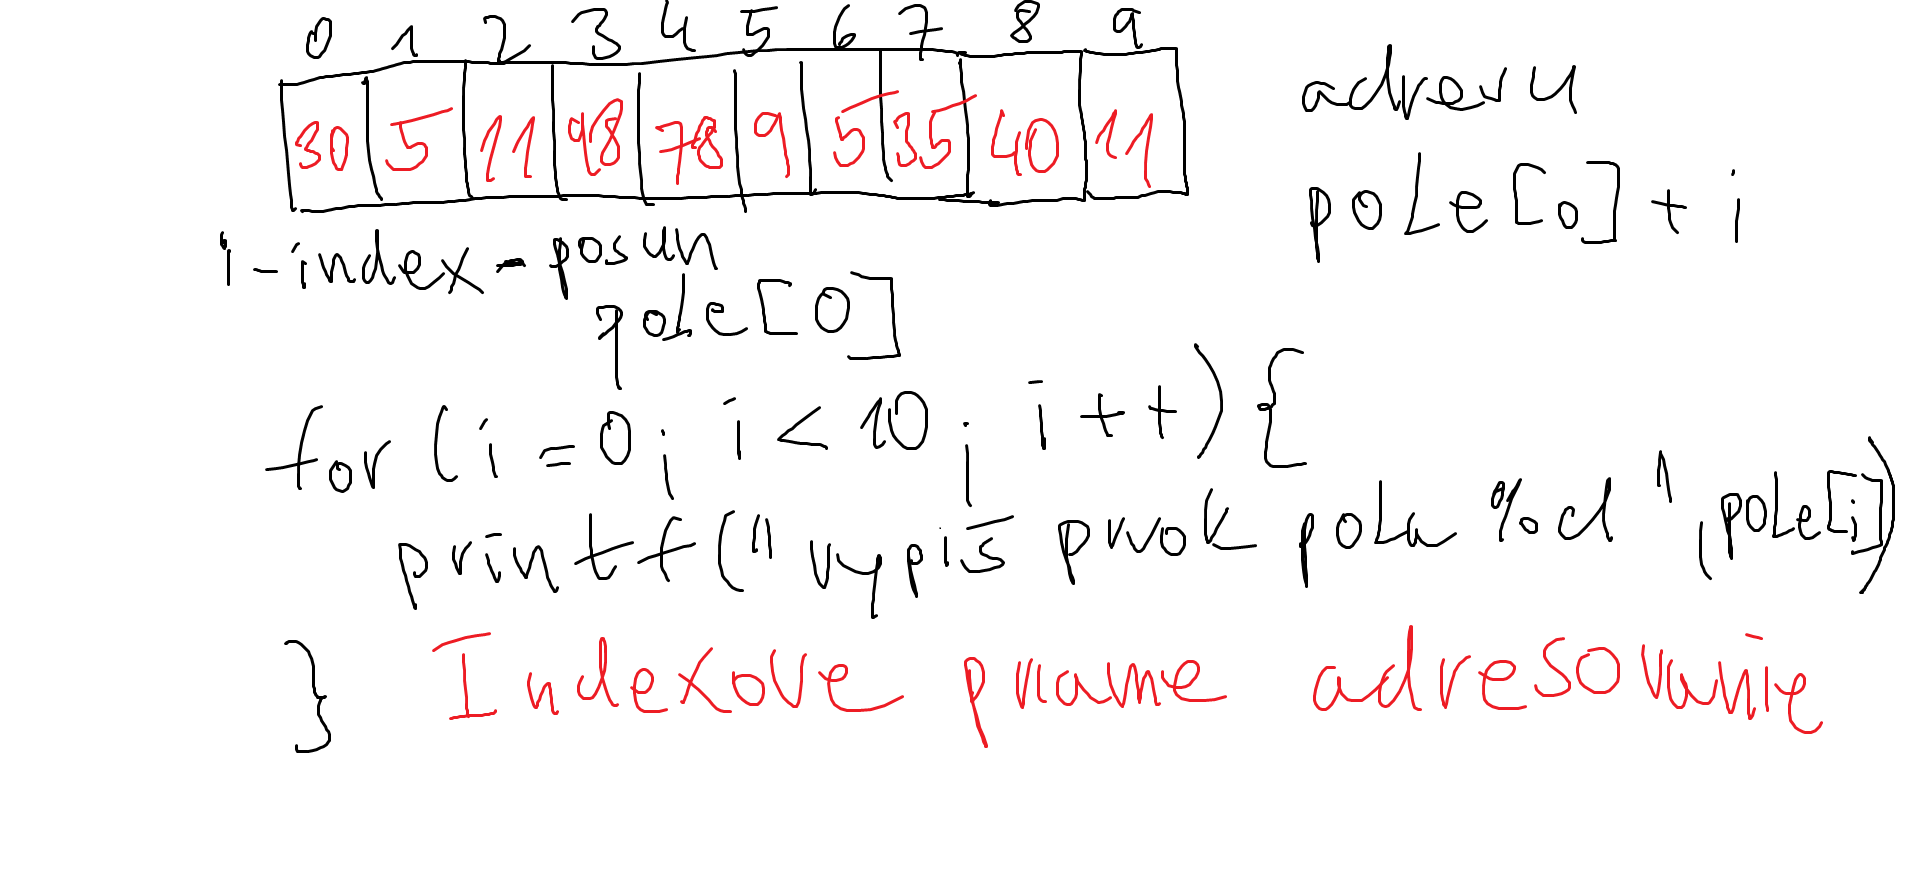 0 1 2 3 4 5 6 7 8 9
30 5 11 98 78 9 5 35 40 11
adresu
pole[0] + i
i - index - posun
pole[0]
for (i = 0; i < 10; i++) {
printf("vypíš prvok pola %d", pole[i])
}
Indexove priame adresovanie